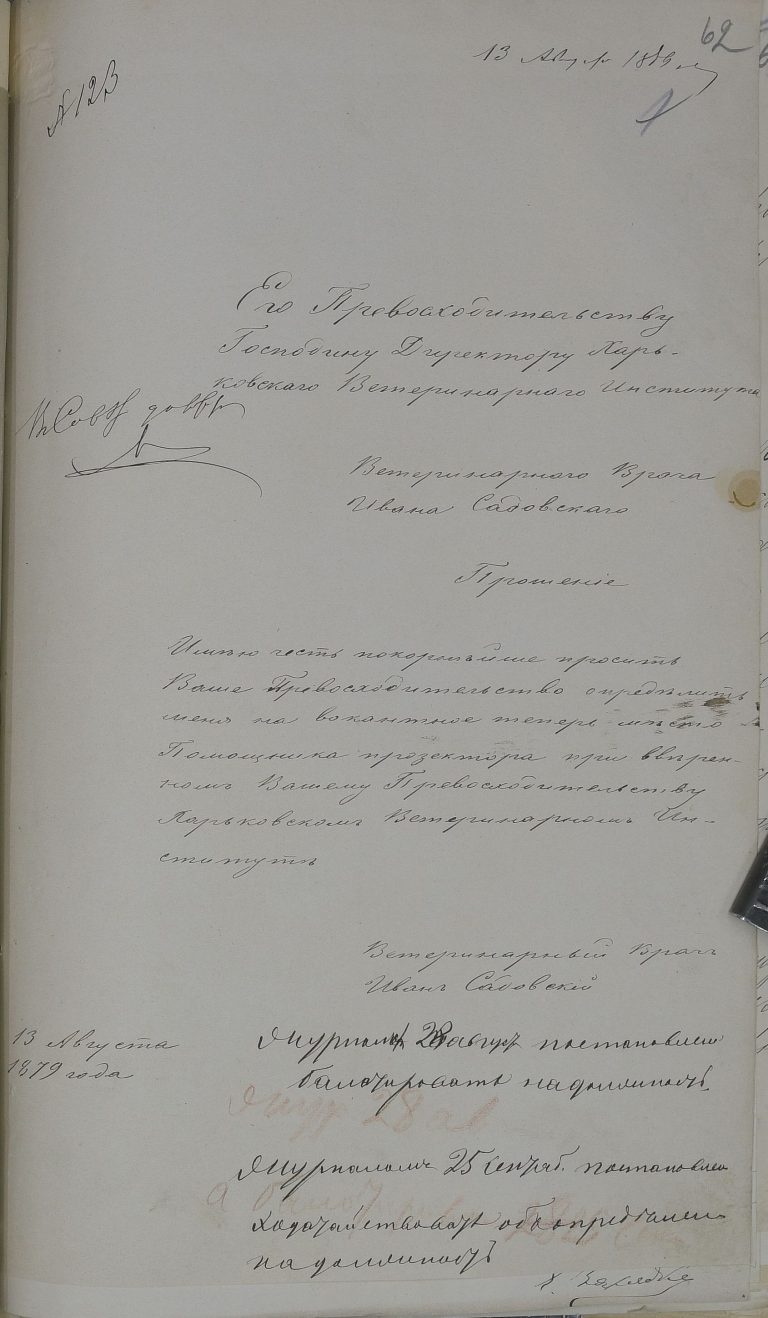 62
13 Авг. 1879 г.
№ 123
1
Его Превосходительству
Господину Директору Харь-
ковскаго Ветеринарнаго Института
Въ Совѣт
Ветеринарнаго Врача
Ивана Садовскаго
Прошеніе
Имѣю честь покорнѣйше просить
Ваше Превосходительство опредѣлить
меня на вакантное теперь мѣсто
Помощника прозектора при ввѣрен-
номъ Вашему Превосходительству
Харьковскомъ Ветеринарномъ Ин-
ститутѣ
Ветеринарный Врачъ
Иванъ Садовскій
13 Августа
1879 года
Журналомъ 28 август постановлено
балотировать на должность.
Жур 28 ав
Журналомъ 25 Сентяб. постановлено
ходатайствовать объ опредѣленіи
на должность